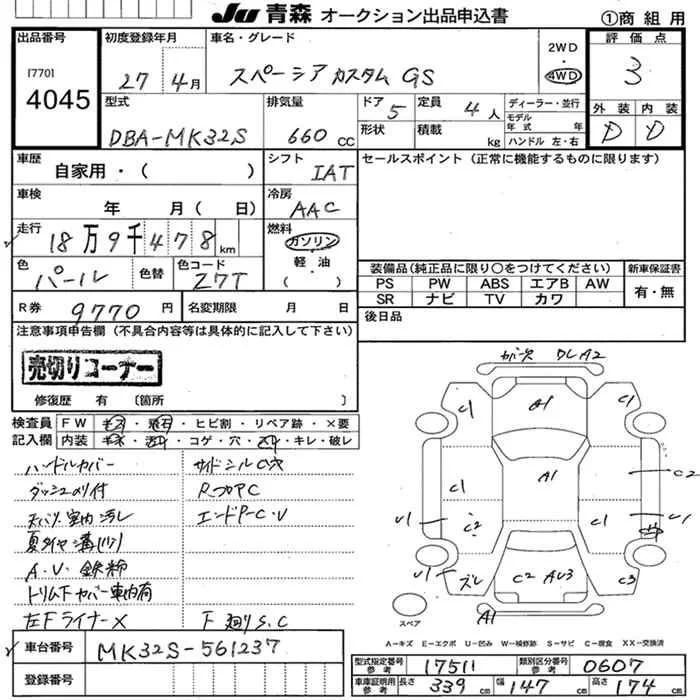 JU 青森 オークション出品申込書 ①商組用
出品番号 [770] 4045
初度登録年月 27年4月
車名・グレード スペーシアカスタム GS
2WD 4WD
評価点 3
外装 D 内装 D
型式 DBA-MK32S
排気量 660cc
ドア 5 形状
定員 4人 積載 kg
ディーラー・並行
モデル年式 年
ハンドル 左・右
車歴 自家用・( )
シフト IAT
セールスポイント(正常に機能するものに限ります)
車検 年 月( 日)
冷房 AAC
走行 18万9千478km
燃料 ガソリン 軽油 ( )
色 パール 色替 色コード Z7T
装備品(純正品に限り○をつけてください) 新車保証書
PS PW ABS エアB AW 有・無
SR ナビ TV カワ
R券 9770円 名変期限 月 日
後日品
注意事項申告欄(不具合内容等は具体的に記入して下さい)
売切りコーナー
修復歴 有 〔箇所 〕
検査員記入欄 FW キズ・飛石・ヒビ割・リペア跡・×要
内装 コゲ・穴・キレ・破レ
ハンドルカバー サイドシルC穴
ダッシュメリ付 RフロアC
天バリ、室内汚レ エンドP-C・U
夏タイヤ溝
A・V・鉄粉
トリム下カバー車内有
左Fライナー× F廻りS、C
車台番号 MK32S-561237
登録番号
ガ欠 DLA2
A1
C1 C1
A1
C1 C2
U1 C2 C1 U1
U1 ズレ C2 AU3 C3
A1
スペア
A-キズ E-エクボ U-凹み W-補修跡 S-サビ C-腐食 XX-交換済
型式指定番号参考 17511 類別区分番号参考 0607
車庫証明用参考 長さ 339cm 幅 147cm 高さ 174cm